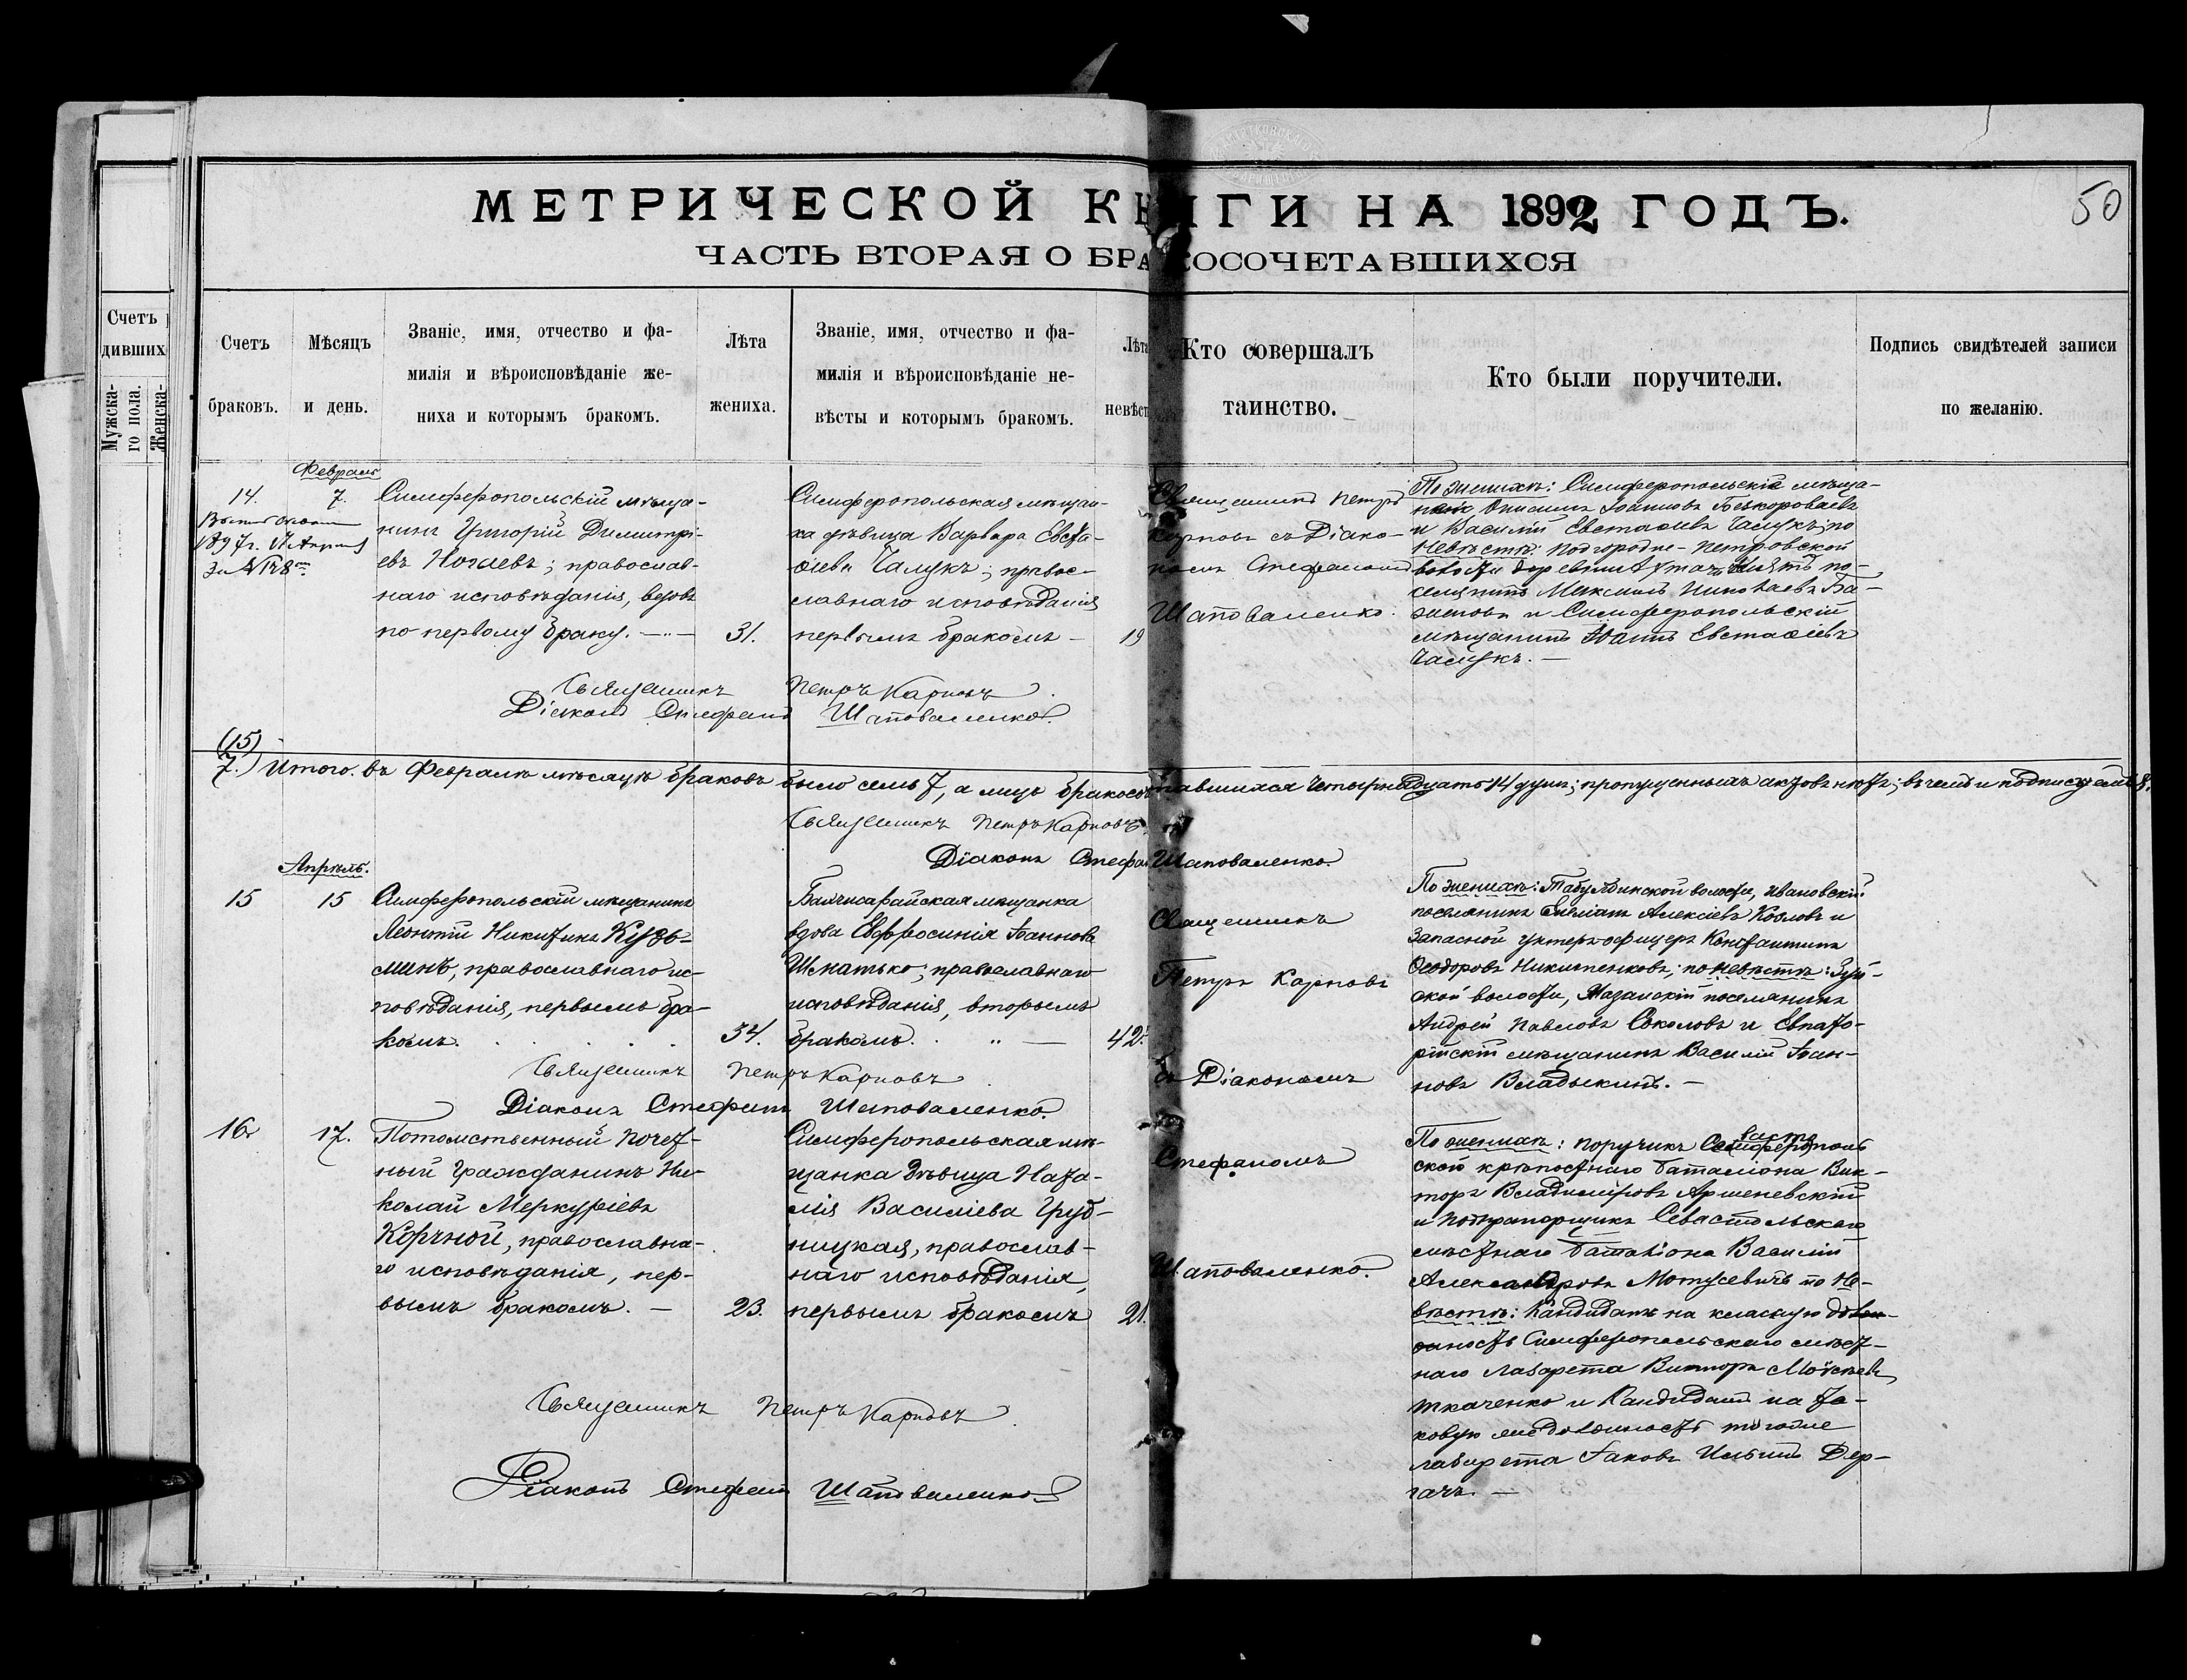 МЕТРИЧЕСКОЙ КНИГИ НА 1892 ГОДЪ.
50
ЧАСТЬ ВТОРАЯ О БРАКОСОЧЕТАВШИХСЯ
Счетъ
дивших
Мужска-
го пола.
Женска-
Счетъ
браковъ.
Мѣсяцъ
и день.
Званіе, имя, отчество и фа-
милія и вѣроисповѣданіе же-
ниха и которымъ бракомъ.
Лѣта
жениха.
Званіе, имя, отчество и фа-
милія и вѣроисповѣданіе не-
вѣсты и которымъ бракомъ.
Лѣта
невѣст
Кто совершалъ
таинство.
Кто были поручители.
Подпись свидѣтелей записи
по желанію.
Февраль
14.
7.
1897 г.
За №
Симферопольскій мѣща-
нинъ Григорій Димитрі-
евъ Ногаевъ; православ-
наго исповѣданія,
по первому браку.
31.
Симферопольская мѣщан-
ка дѣвица Варвара Евста-
ѳіева Чамукъ; правос-
славнаго исповѣданія
первымъ бракомъ
19
Священникъ Петръ
Карповъ съ Діако-
номъ Стефаномъ
Шаповаленко.
По женихѣ: Симферопольскіе мѣща-
Іоанновъ
и Василій Евстаѳіевъ Чамукъ; по
Невѣстѣ: Подгородне-Петровской
волости деревни
селянинъ Максимъ Николаевъ Ба-
и Симферопольскій
мѣщанинъ Іоаннъ Евстаѳіевъ
Чамукъ.
Священникъ Петръ Карповъ
Діаконъ Стефанъ Шаповаленко
(15)
7.) Итого въ Февралѣ мѣсяцѣ браковъ было семь 7, а лицъ бракосочетавшихся четырнадцать 14 душъ; пропущенныхъ актовъ нѣтъ; въ чемъ и подписуемся.
Священникъ Петръ Карповъ
Діаконъ Стефанъ Шаповаленко.
Апрѣль.
15
15
Симферопольскій мѣщанинъ
Леонтій Никитинъ Кузь-
минъ, православнаго ис-
повѣданія, первымъ бра-
комъ.
34.
Бахчисарайская мѣщанка
вдова Евфросинія Іоаннова
Шкатько; православнаго
исповѣданія, вторымъ
бракомъ.
42.
Священникъ
Петръ Карповъ
съ Діакономъ
Стефаномъ
Шаповаленко.
По женихѣ: Табулдинской волости, Ивановскій
поселянинъ Алексіевъ Козловъ и
Запасной унтеръ-офицеръ Константинъ
Ѳеодоровъ Никитенковъ; по невѣстѣ: Зуй-
ской волости, Мазанскій поселянинъ
Андрей Павловъ Соколовъ и Евпато-
рійскій мѣщанинъ Василій Іоан-
новъ Владыкинъ.
Священникъ Петръ Карповъ
Діаконъ Стефанъ Шаповаленко.
16
17.
Потомственный Почет-
ный Гражданинъ Ни-
колай Меркуріевъ
Корчной, православна-
го исповѣданія, пер-
вымъ бракомъ.
23.
Симферопольская мѣ-
щанка дѣвица Ната-
лія Василіева Груд-
ницкая, православ-
наго исповѣданія,
первымъ бракомъ
21.
По женихѣ: Поручикъ
ской крѣпостнаго баталіона Вик-
торъ Владиміровъ Аршеневскій
и Подпрапорщикъ Севастопольскаго
мѣстнаго баталіона Василій
Александровъ Мотусевичъ по Не-
вѣстѣ: Кандидатъ на класную
Симферопольскаго мѣст-
наго лазарета Викторъ Моѵсеевъ
Ткаченко и Кандидатъ на та-
ковую же должность тогоже
лазарета Іаковъ Ильинъ Дер-
гачъ.
Священникъ Петръ Карповъ
Діаконъ Стефанъ Шаповаленко